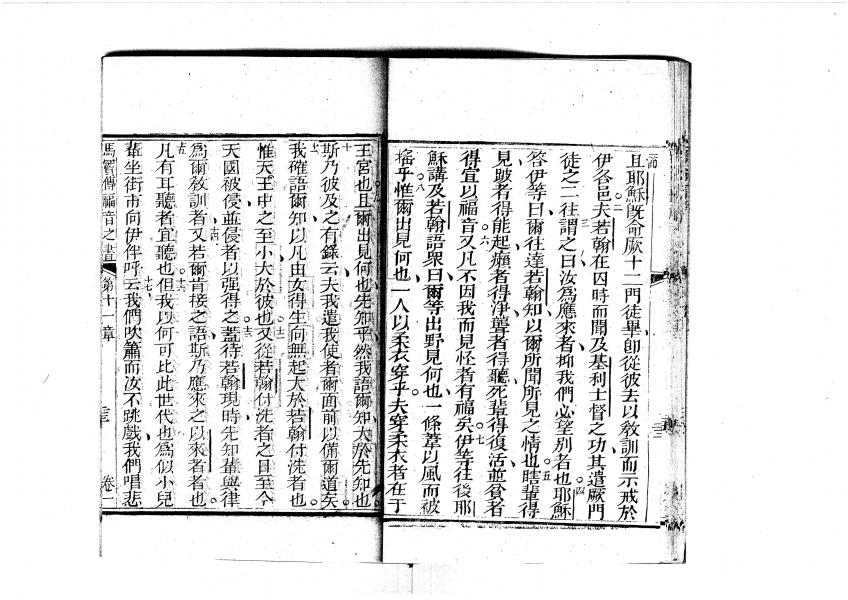 且耶穌既命厥十二門徒畢即從彼去以教訓而示戒於
伊各邑夫若翰在囚時而聞及基利士督之功其遣厥門
徒之二往謂之曰汝為應來者抑我們必望別者也耶穌
答伊等曰爾往達若翰知以爾所聞所見之情也瞎輩得
見跛者得能起癩者得淨聾者得聽死輩得復活並貧者
得宣以福音又凡不因我而見怪者有福矣伊等往後耶
穌講及若翰語衆曰爾等出野見何也一條葦以風而被
搖乎惟爾出見何也一人以柔衣穿乎夫穿柔衣者在于
王宮也且爾出見何也先知乎然我語爾知大於先知也
斯乃彼及之有錄云夫我遣我使者爾面前以備爾道矣
我確語爾知以凡由女得生向無起大於若翰付洗者也
惟天王中之至小大於彼也又從若翰付洗者之日至今
天國被侵並侵者以强得之蓋待若翰現時先知輩與律
為爾教訓者又若爾肯接之語斯乃應來之以來者者也
凡有耳聽者宜聽也但我以何可比此世代也為似小兒
輩坐街市向伊伴呼云我們吹簫而汝不跳戲我們唱悲
馬竇傳福音之書 第十一章 卷一